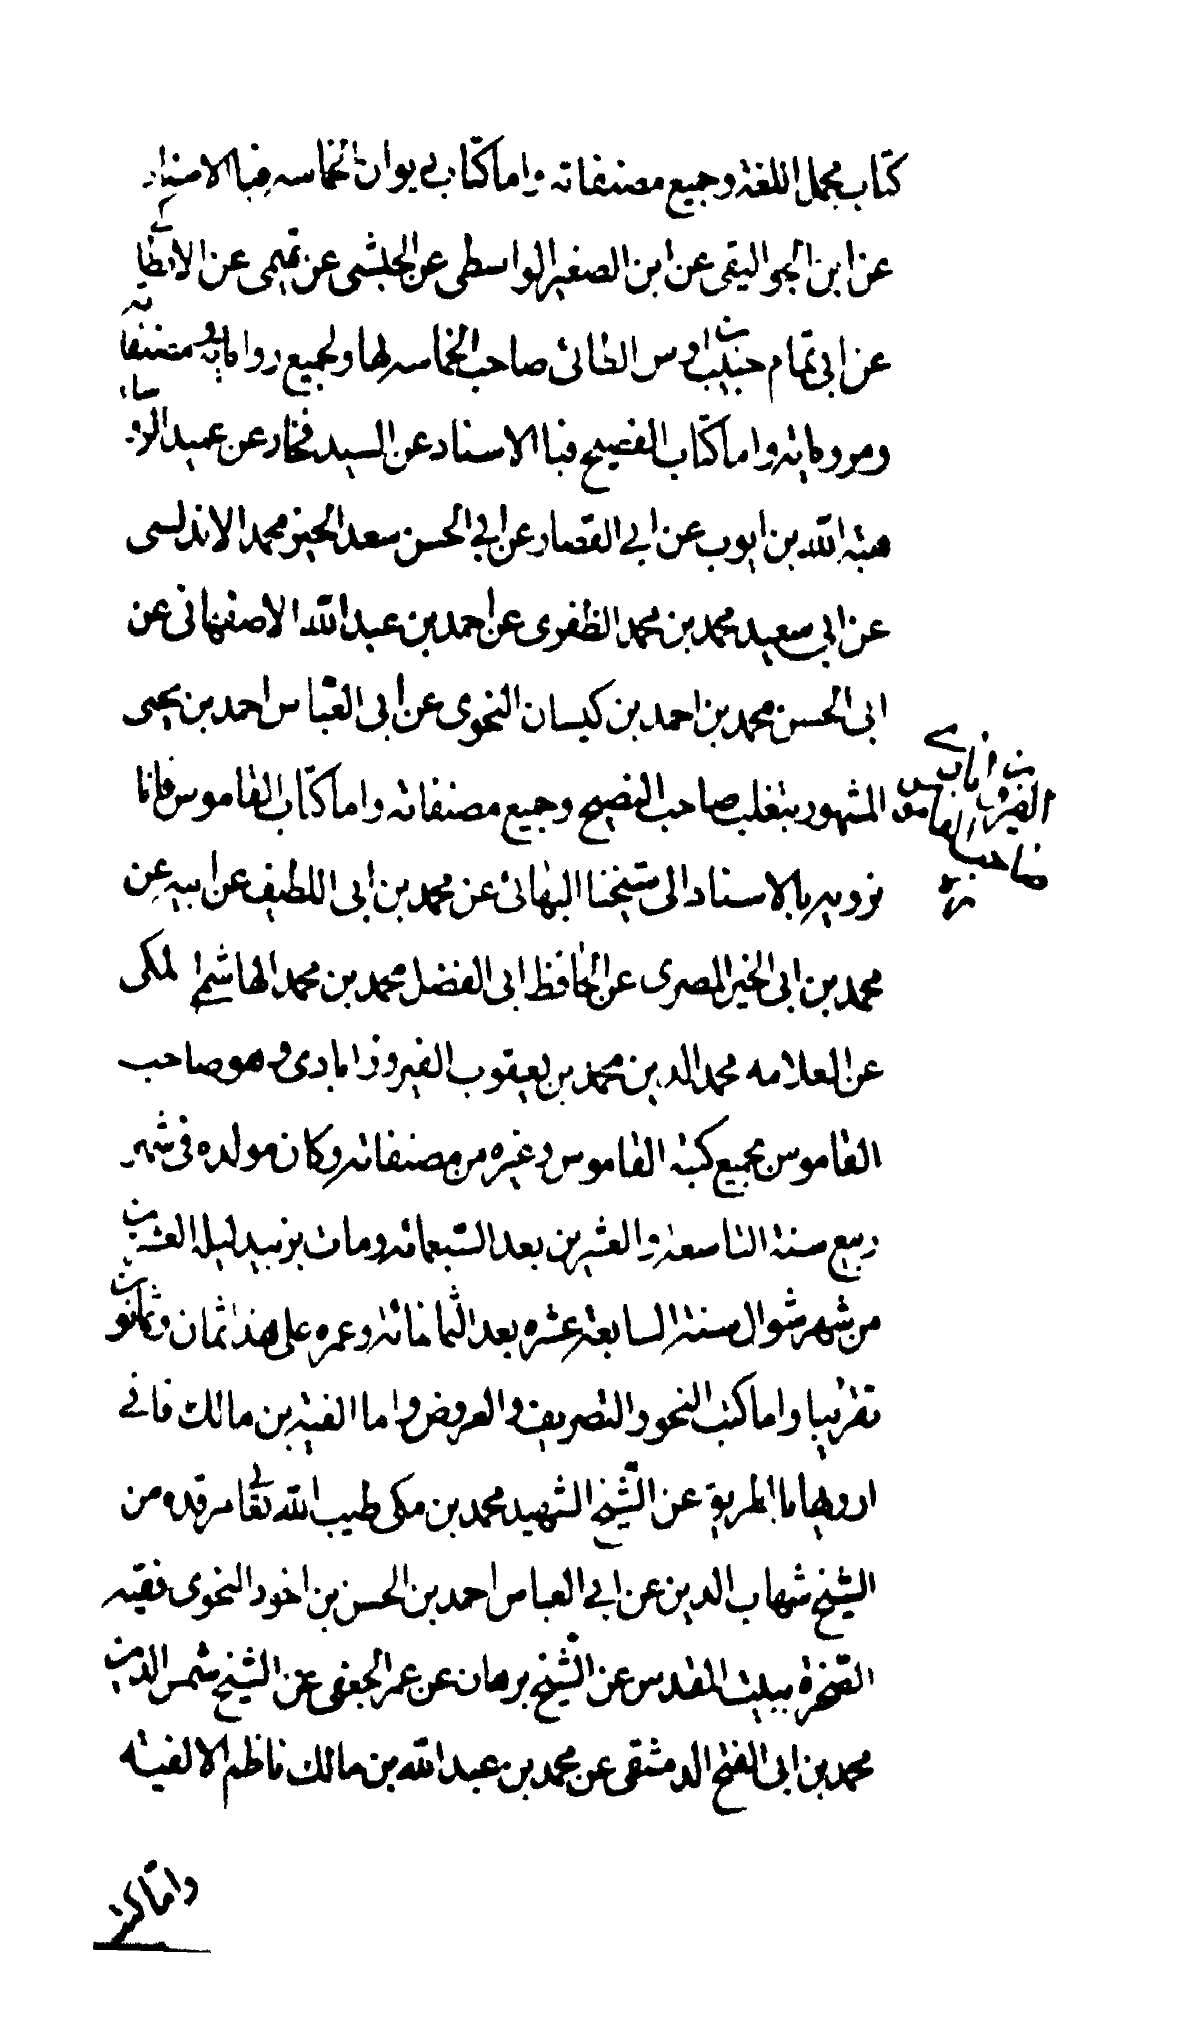 كتاب مجمل اللغة وجميع مصنفاته واما كتاب ديوان الحماسه فبالاسناد
عن ابن الجواليقى عن ابن الصغير الواسطى عن الحبشى عن تميمى عن الانطاكى
عن ابى تمام حبيب بن اوس الطائى صاحب الحماسه لها ولجميع رواياته ومصنفاته
ومروياته واما كتاب الفصيح فبالاسناد عن السيد فخار عن عميد الرؤساء
هبة الله بن ايوب عن ابى القصار عن ابى الحسن سعد الخير محمد الاندلسى
عن ابى سعيد محمد بن محمد الظفرى عن احمد بن عبد الله الاصفهانى عن
ابى الحسن محمد بن احمد بن كيسان النحوى عن ابى العباس احمد بن يحيى
المشهور بثغلب صاحب الفصيح وجميع مصنفاته واما كتاب القاموس فانا
نرويه بالاسناد الى شيخنا البهائى عن محمد بن ابى اللطيف عن ابيه عن
محمد بن ابى الخير المصرى عن الحافظ ابى الفضل محمد بن محمد الهاشمى المكى
عن العلامه محمد الدين محمد بن يعقوب الفيروزابادى وهو صاحب
القاموس بجميع كتبه القاموس وغيره من مصنفاته وكان مولده فى شهر
ربيع سنة التاسعة والعشرين بعد السبعمائه ومات بزبيد ليلة العشرين
من شهر شوال سنة السابعة عشره بعد الثمانمائة وعمره على هذا ثمان وثمانون
تقريبا واما كتب النحو والتصريف والعروض واما الفية بن مالك فانى
ارويها بالطريق عن الشيخ الشهيد محمد بن مكى طيب الله تعالى مرقده من
الشيخ شهاب الدين عن ابى العباس احمد بن الحسن بن اخود النحوى فقيه
الصخرة ببيت المقدس عن الشيخ برهان عن عمر الجعفى عن الشيخ شمس الدين
محمد بن ابى الفتح الدمشقى عن محمد بن عبد الله بن مالك ناظم الالفيه
الفيروزابادى
صاحب القاموس
واما كتب